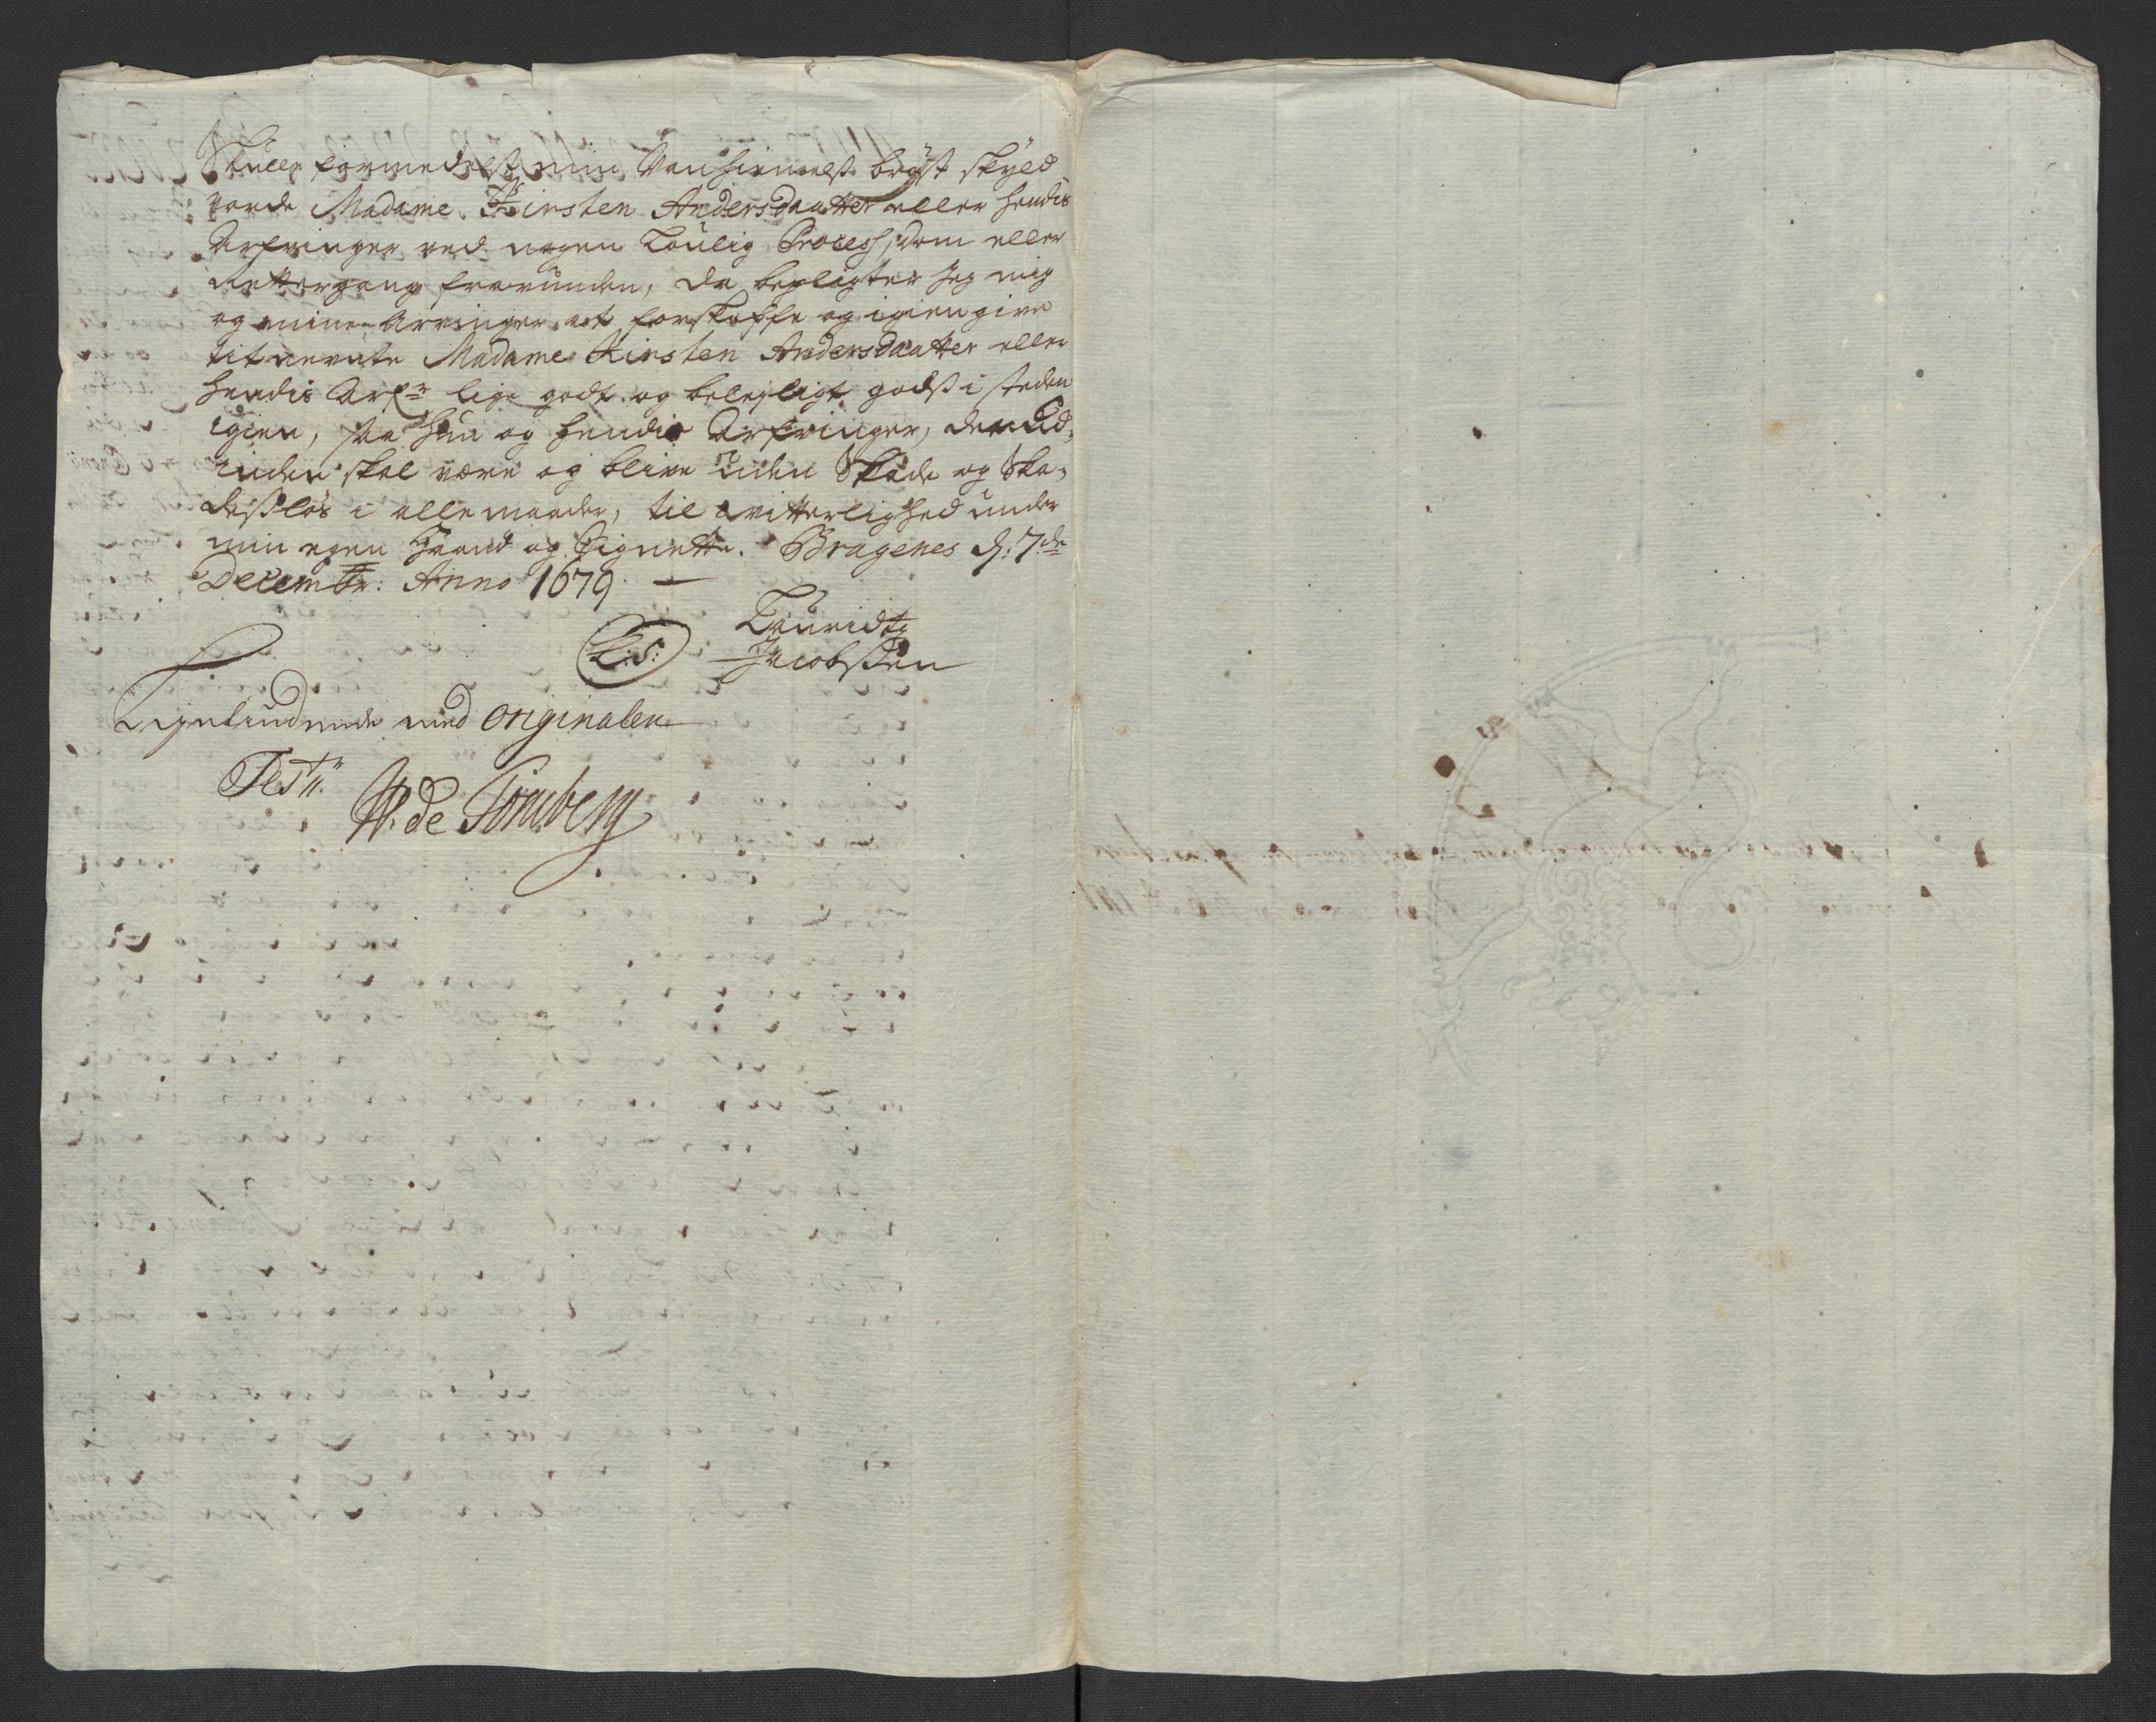 Skulle formedelst min Vanhiemels brøst skyld
vorde Madame Kirsten Andersdaatter eller hendis
Arfvinger ved nogen Loulig Process, dom eller
Rettergang fravunden, da bepligter Jeg mig
og mine Arvinger at forskaffe og igiengive
bitnevnte Madame Kirsten Andersdaatter eller
hendis Arfr: lige godt og beleyligt godtz i steden
igien, saa hun og hendis Arfvinger, der ud,,
inden skal være og blive uden Skade og Ska,,
desløs i alle maader, til vitterlighed under
min egen Haand og Signette. Bragenes d: 7de
Decembr: Anno 1679. —
L:S: Lauridtz
Jacobsen
Ligelydende med originalen
Test:
W. de Tonsberg